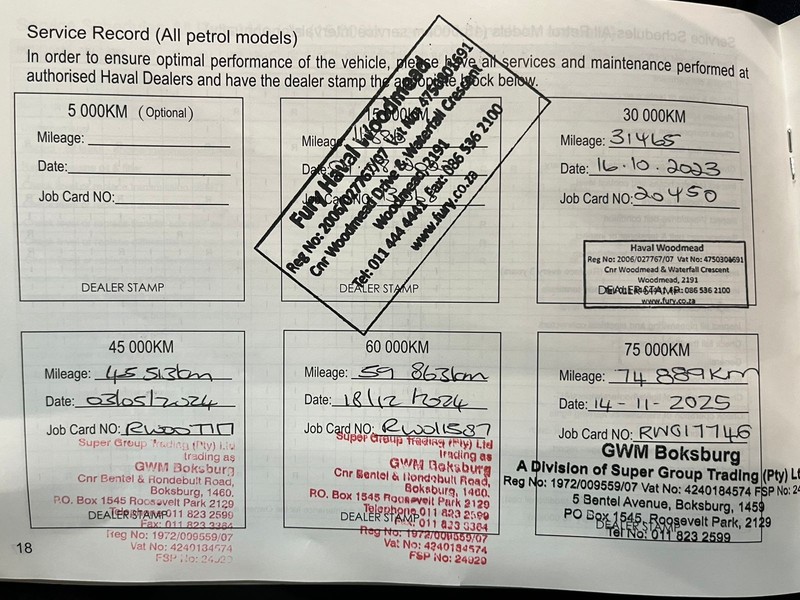 Service Record (All petrol models)
In order to ensure optimal performance of the vehicle, please have all services and maintenance performed at
authorised Haval Dealers and have the dealer stamp the appropriate block below.
5 000KM (Optional)
Mileage:
Date:
Job Card NO:
DEALER STAMP
Mileage:
DEALER STAMP
Fury Haval Woodmead
Reg No: 2006/027767/07 Vat No: 4750308691
Cnr Woodmead Drive & Waterfall Crescent
Woodmead, 2191
Tel: 011 444 Fax: 086 536 2100
www.fury.co.za
30 000KM
Mileage: 31465
Date: 16.10.2023
Job Card NO: 20450
Haval Woodmead
Reg No: 2006/027767/07 Vat No: 4750308691
Cnr Woodmead & Waterfall Crescent
Woodmead, 2191
DEALER STAMP 086 536 2100
www.fury.co.za
45 000KM
Mileage: 45513km
Date: 03/05/2024
Job Card NO:
Super Group Trading (Pty) Ltd
trading as
GWM Boksburg
Cnr Bentel & Rondebult Road,
Boksburg, 1460.
P.O. Box 1545 Roosevelt Park 2129
Telephone 011 823 2599
DEALER STAMP
Fax: 011 823 3364
Reg No: 1972/009559/07
Vat No: 4240184574
FSP No: 24029
60 000KM
Mileage: 59 863km
Date: 18/12/2024
Job Card NO: RW011587
Super Group Trading (Pty) Ltd
trading as
GWM Boksburg
Cnr Bentel & Rondebult Road,
Boksburg, 1460.
P.O. Box 1545 Roosevelt Park 2129
Telephone 011 823 2599
DEALER STAMP
Fax: 011 823 3364
Reg No: 1972/009559/07
Vat No: 4240184574
FSP No: 24029
75 000KM
Mileage: 74 889Km
Date: 14-11-2025
Job Card NO: RW017746
GWM Boksburg
A Division of Super Group Trading (Pty) Lt
Reg No: 1972/009559/07 Vat No: 4240184574 FSP No: 24
5 Bentel Avenue, Boksburg, 1459
PO Box 1545, Roosevelt Park, 2129
DEALER STAMP
Tel No: 011 823 2599
18